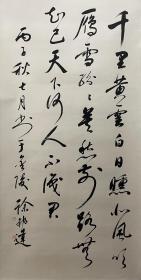 千里黄雲白日曛北風吹
雁雪紛紛莫愁前路無
知己天下何人不識君
丙子秋七月書于金陵徐純達